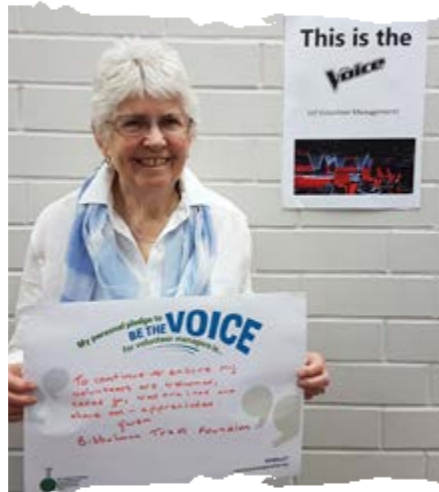 This is the
Voice
(of Volunteer Management)
My personal pledge to
BE THE VOICE
for volunteer managers is...
To continue to ensure my
volunteers are welcomed,
cared for, and
above all - appreciated
Gwen
Bibbulmun Track Foundation